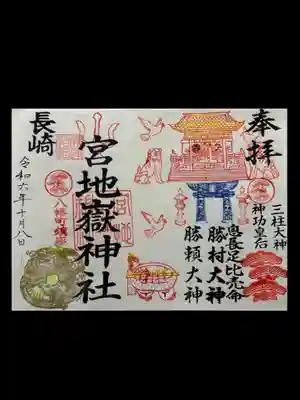 奉拝
三柱大神
神功皇后
息長足比売命
勝村大神
勝頼大神
宮地嶽神社
八幡町鎮座
長崎
令和六年十月八日